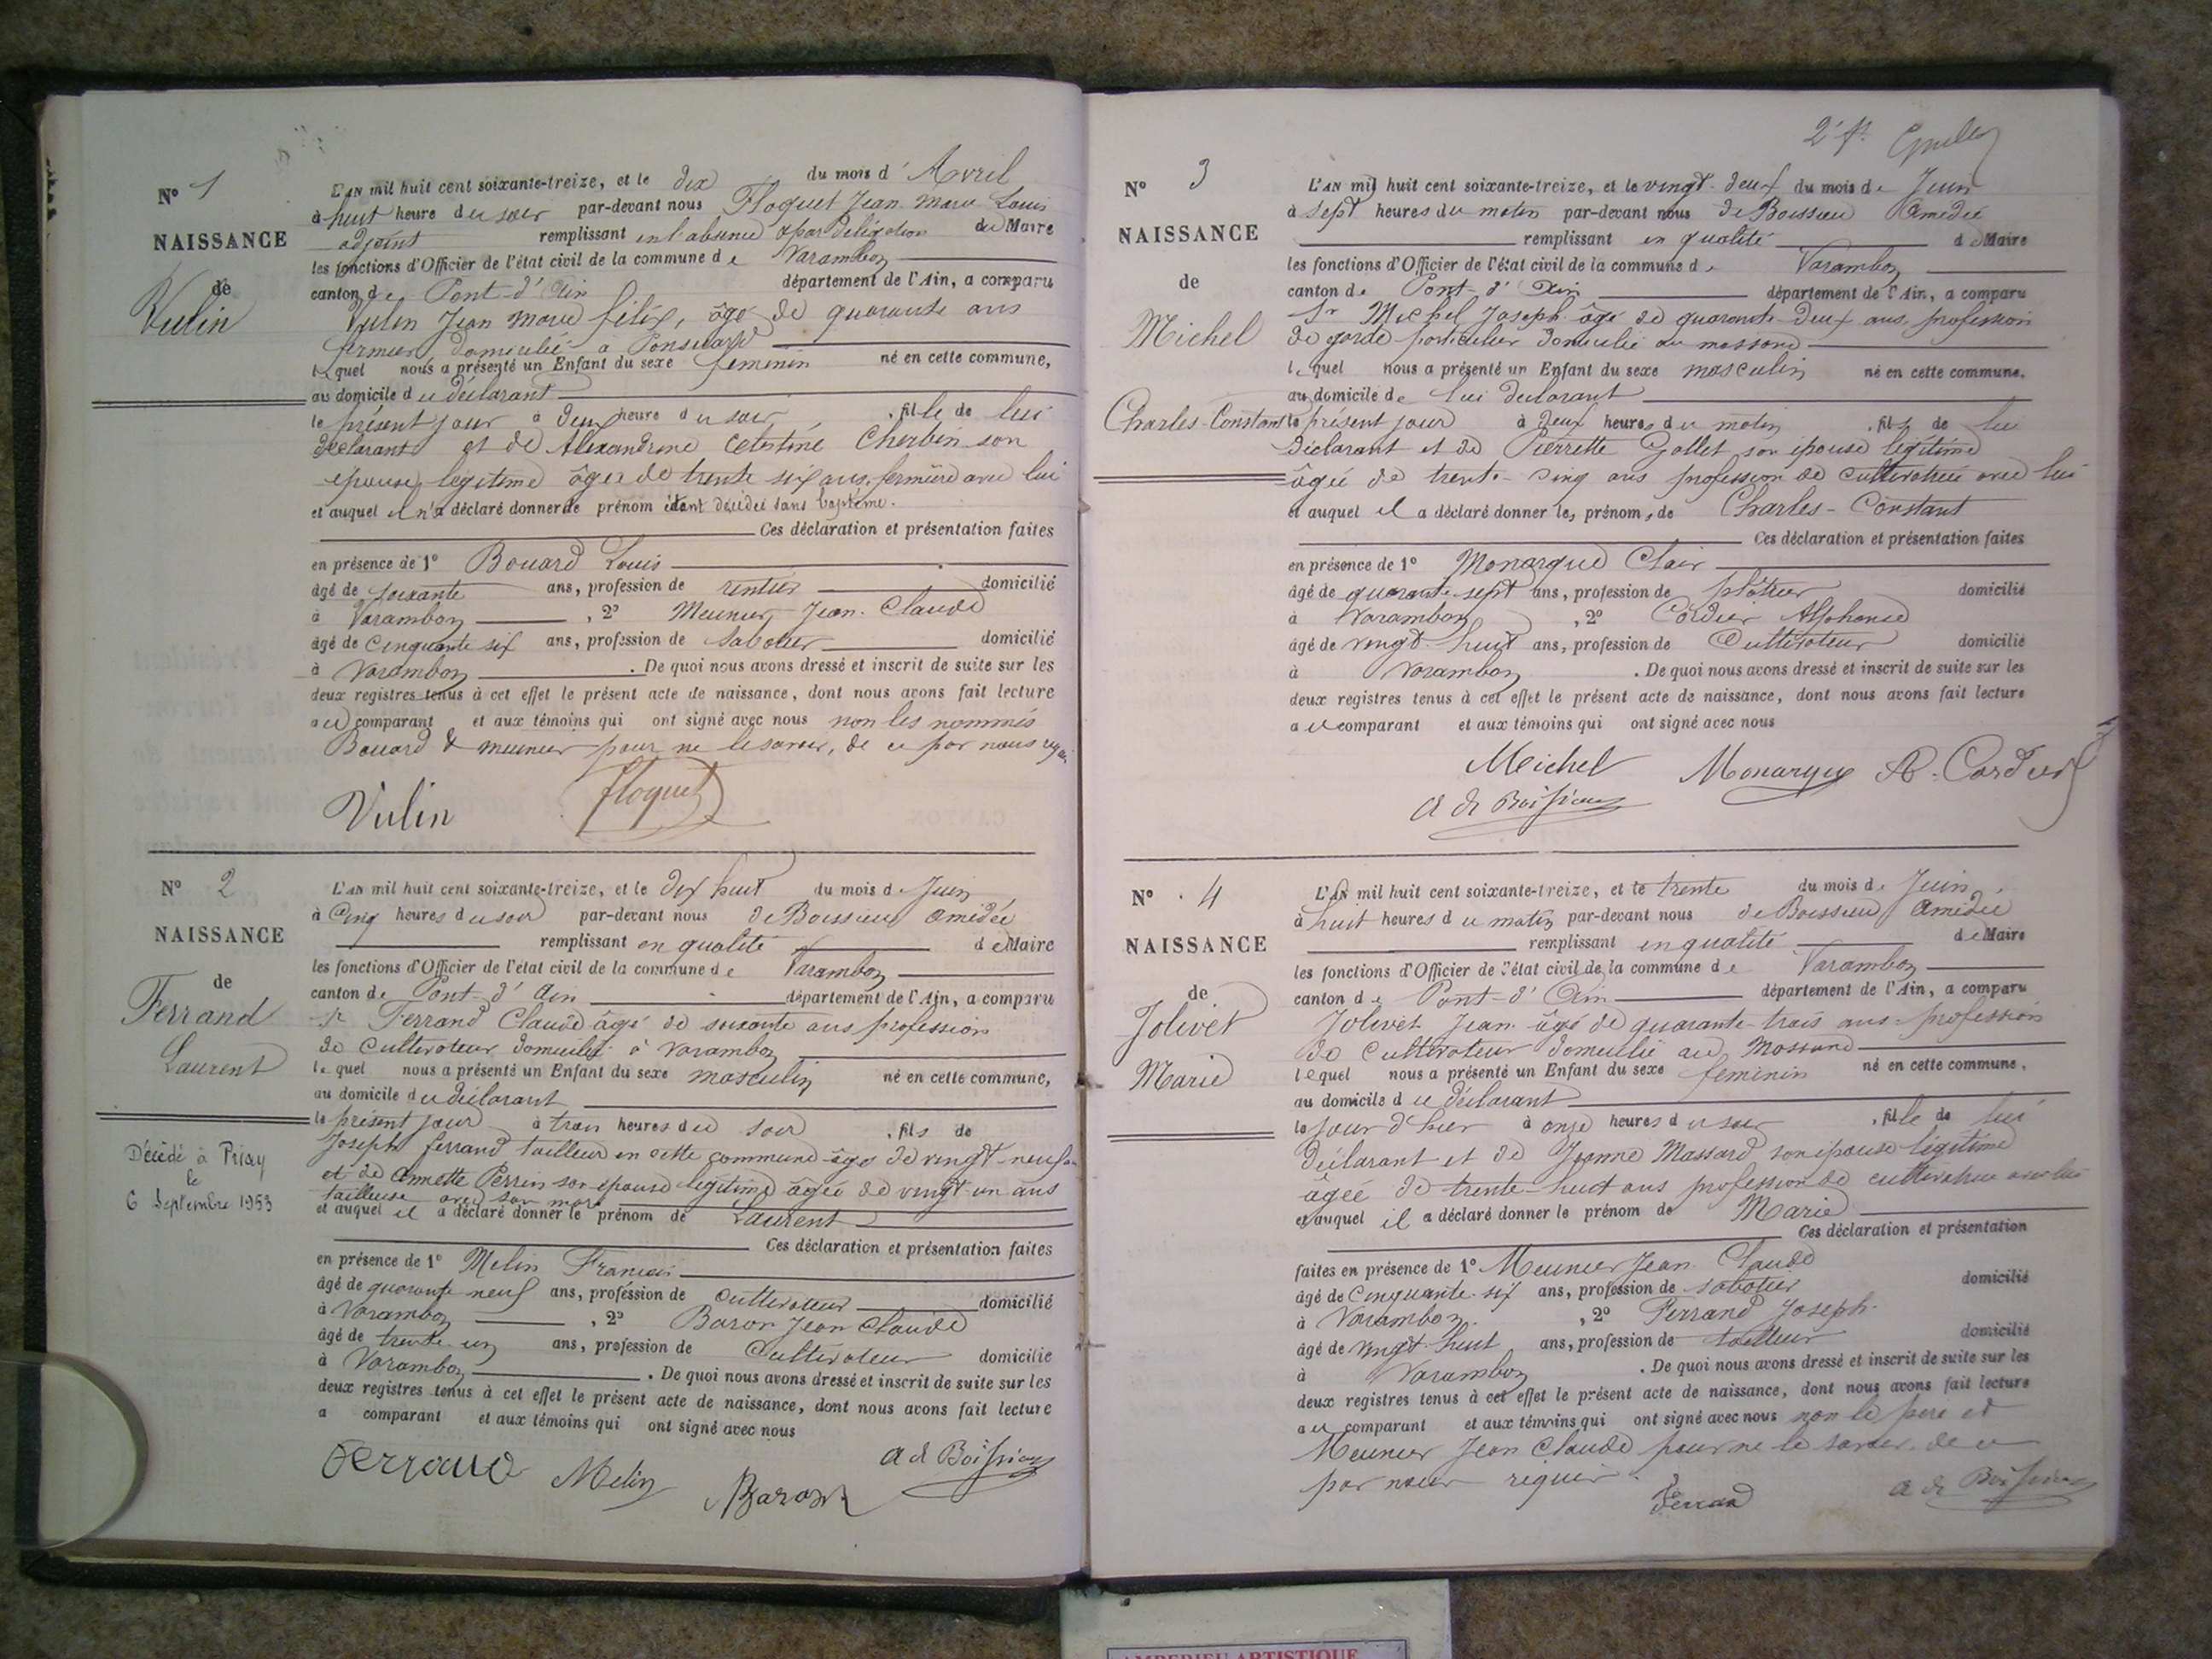 N° 1
NAISSANCE
de
Vulin
L'AN mil huit cent soixante-treize, et le dix du mois d'Avril
à huit heure du soir par-devant nous Floquet Jean Marie Louis
adjoint remplissant en l'absence & par délégation du Maire
les fonctions d'Officier de l'état civil de la commune de Varambon
canton de Pont-d'Ain département de l'Ain, a comparu
Vulin Jean Marie félix, âgé de quarante ans
fermier domicilié a Ponsuard
lequel nous a présenté un Enfant du sexe féminin né en cette commune,
au domicile du déclarant
le présent jour à deux heure du soir, fille de lui
déclarant et de Alexandrine Celestine Cherbin son
épouse légitime âgée de trente six ans, fermière avec lui
et auquel il n'a déclaré donner de prénom étant décédée sans baptême.
Ces déclaration et présentation faites
en présence de 1° Bouard Louis
âgé de soixante ans, profession de rentier domicilié
à Varambon, 2° Meunier Jean-Claude
âgé de Cinquante six ans, profession de Sabotier domicilié
à Varambon. De quoi nous avons dressé et inscrit de suite sur les
deux registres tenus à cet effet le présent acte de naissance, dont nous avons fait lecture
au comparant et aux témoins qui ont signé avec nous non les nommés
Bouard & meunier pour ne le savoir, de ce par nous
Vulin Floquet
N° 2
NAISSANCE
de
Ferrand
Laurent
Décédé à Priay
le
6 Septembre 1953
L'AN mil huit cent soixante-treize, et le dix huit du mois de Juin
à Cinq heures du soir par-devant nous de Boissieu Amédée
remplissant en qualité de Maire
les fonctions d'Officier de l'état civil de la commune de Varambon
canton de Pont-d'Ain département de l'Ain, a comparu
Sr Ferrand Claude âgé de soixante ans profession
de Cultivateur domicilié à Varambon
lequel nous a présenté un Enfant du sexe masculin né en cette commune,
au domicile du déclarant
le présent jour à trois heures du soir, fils de
Joseph ferrand tailleur en cette commune âgé de vingt-neuf
et de Annette Perrin son épouse légitime âgée de vingt un ans
tailleuse avec son mari
et auquel il a déclaré donner le prénom de Laurent
Ces déclaration et présentation faites
en présence de 1° Melin Francois
âgé de quarante neuf ans, profession de cultivateur domicilié
à Varambon, 2° Baron Jean Claude
âgé de trente un ans, profession de Cultivateur domicilié
à Varambon. De quoi nous avons dressé et inscrit de suite sur les
deux registres tenus à cet effet le présent acte de naissance, dont nous avons fait lecture
a comparant et aux témoins qui ont signé avec nous
Ferrand Melin Baron A de Boissieu
2e ft
N° 3
NAISSANCE
de
Michel
Charles-Constant
L'AN mil huit cent soixante-treize, et le vingt-deux du mois de Juin
à sept heures du matin par-devant nous de Boissieu Amédée
remplissant en qualité de Maire
les fonctions d'Officier de l'état civil de la commune de Varambon
canton de Pont-d'Ain département de l'Ain, a comparu
Sr Michel Joseph âgé de quarante-deux ans, profession
de garde-particulier domicilié au massard
lequel nous a présenté un Enfant du sexe masculin né en cette commune.
au domicile de lui déclarant
le présent jour à deux heures du matin, fils de lui
déclarant et de Pierrette Gollet son épouse légitime
âgée de trente-cinq ans profession de cultivatrice avec lui
et auquel il a déclaré donner les prénoms de Charles-Constant
Ces déclaration et présentation faites
en présence de 1° Monarque Clair
âgé de quarante sept ans, profession de plâtrier domicilié
à Varambon, 2° Cordier Alphonse
âgé de vingt-huit ans, profession de Cultivateur domicilié
à Varambon. De quoi nous avons dressé et inscrit de suite sur les
deux registres tenus à cet effet le présent acte de naissance, dont nous avons fait lecture
au comparant et aux témoins qui ont signé avec nous
Michel Monarque A. Cordier
A de Boissieu
N° 4
NAISSANCE
de
Jolivet
Marie
L'AN mil huit cent soixante-treize, et le trente du mois de Juin
à huit heures du matin par-devant nous de Boissieu Amédée
remplissant en qualité de Maire
les fonctions d'Officier de l'état civil de la commune de Varambon
canton de Pont-d'Ain département de l'Ain, a comparu
Jolivet Jean âgé de quarante-trois ans profession
de cultivateur domicilié au Massard
lequel nous a présenté un Enfant du sexe féminin né en cette commune,
au domicile du déclarant
le jour d'hier à onze heures du soir, fille de lui
déclarant et de Jeanne Massard son épouse légitime
âgée de trente-huit ans profession de cultivatrice avec lui
et auquel il a déclaré donner le prénom de Marie
Ces déclaration et présentation
faites en présence de 1° Meunier Jean Claude
âgé de Cinquante-six ans, profession de sabotier domicilié
à Varambon, 2° Ferrand Joseph
âgé de vingt-huit ans, profession de tailleur domicilié
à Varambon. De quoi nous avons dressé et inscrit de suite sur les
deux registres tenus à cet effet le présent acte de naissance, dont nous avons fait lecture
au comparant et aux témoins qui ont signé avec nous non le père et
Meunier Jean Claude pour ne le savoir de ce
par nous requis.
Ferrand A de Boissieu
AMBERIEU ARTISTIQUE